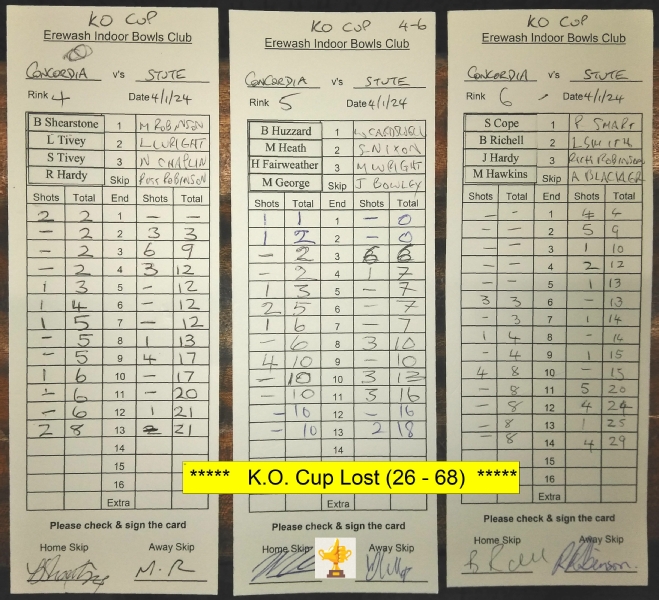 KO CUP
Erewash Indoor Bowls Club
CONCORDIA v's STUTE
Rink 4 Date 4/1/24
B Shearstone 1 M ROBINSON
L Tivey 2 L WRIGHT
S Tivey 3 N CHAPLIN
R Hardy Skip ROSS ROBINSON
Shots Total End Shots Total
2 2 1 - -
- 2 2 3 3
- 2 3 6 9
- 2 4 3 12
1 3 5 - 12
1 4 6 - 12
1 5 7 - 12
- 5 8 1 13
- 5 9 4 17
1 6 10 - 17
- 6 11 - 20
- 6 12 1 21
2 8 13 - 21
14
15
16
Extra
Please check & sign the card
Home Skip Away Skip
M.R
KO CUP 4-6
Erewash Indoor Bowls Club
CONCORDIA v's STUTE
Rink 5 Date 4/1/24
B Huzzard 1
M Heath 2 S NIXON
H Fairweather 3 M WRIGHT
M George Skip J BOWLEY
Shots Total End Shots Total
1 1 1 - 0
1 2 2 - 0
- 2 3 6 6
- 2 4 1 7
1 3 5 - 7
2 5 6 - 7
1 6 7 - 7
- 6 8 3 10
4 10 9 - 10
- 10 10 3 13
- 10 11 3 16
- 10 12 - 16
- 10 13 2 18
14
15
16
Extra
Please check & sign the card
Home Skip Away Skip
KO CUP
Erewash Indoor Bowls Club
CONCORDIA v's STUTE
Rink 6 Date 4/1/24
S Cope 1 P SMART
B Richell 2 L SMITH
J Hardy 3 RICH ROBINSON
M Hawkins Skip A BLACKLER
Shots Total End Shots Total
- - 1 4 4
- - 2 5 9
- - 3 1 10
- - 4 2 12
- - 5 1 13
3 3 6 - 13
- 3 7 1 14
1 4 8 - 14
- 4 9 1 15
4 8 10 - 15
- 8 11 5 20
- 8 12 4 24
- 8 13 1 25
- 8 14 4 29
15
16
Extra
Please check & sign the card
Home Skip Away Skip
***** K.O. Cup Lost (26 - 68) *****